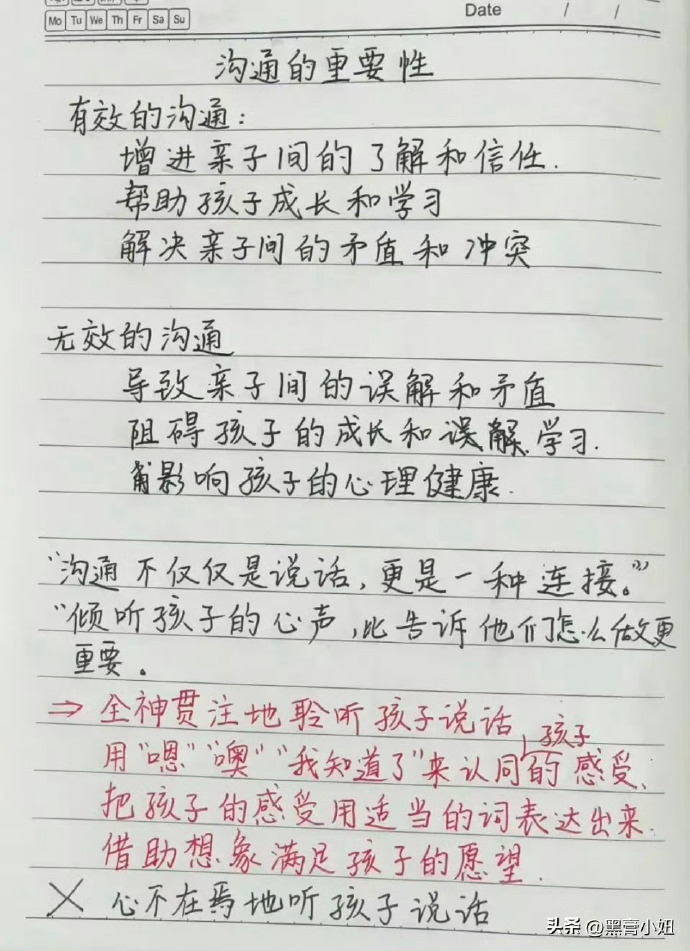 Mo Tu We Th Fr Sa Su
Date / /
沟通的重要性
有效的沟通:
增进亲子间的了解和信任.
帮助孩子成长和学习
解决亲子间的矛盾和冲突
无效的沟通
导致亲子间的误解和矛盾
阻碍孩子的成长和误解学习.
影响孩子的心理健康.
“沟通不仅仅是说话,更是一种连接。”
“倾听孩子的心声,比告诉他们怎么做更
重要。
⇒ 全神贯注地聆听孩子说话
孩子
用“嗯”“噢”“我知道了”来认同的感受.
把孩子的感受用适当的词表达出来.
借助想象满足孩子的愿望.
× 心不在焉地听孩子说话
头条 @黑膏小妞